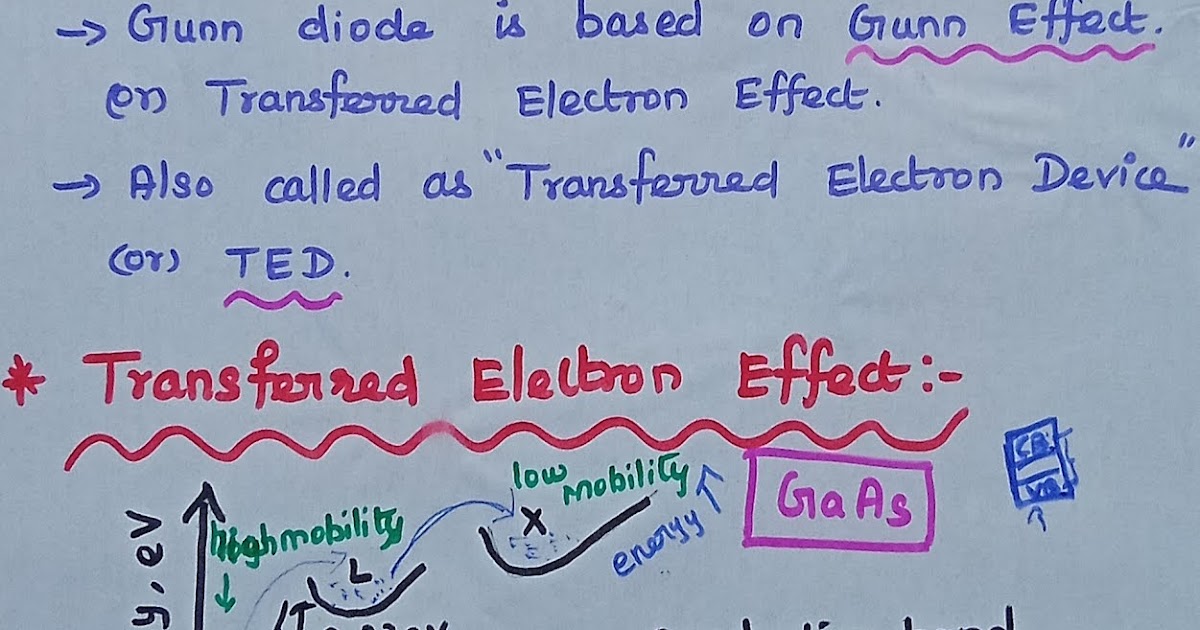 → Gunn diode is based on Gunn Effect.
(or) Transferred Electron Effect.
→ Also called as "Transferred Electron Device"
(or) TED.
* Transferred Eleltron Effect:-
low mobility
high mobility
X
L
energy
GaAs
CB
VB
y, eV